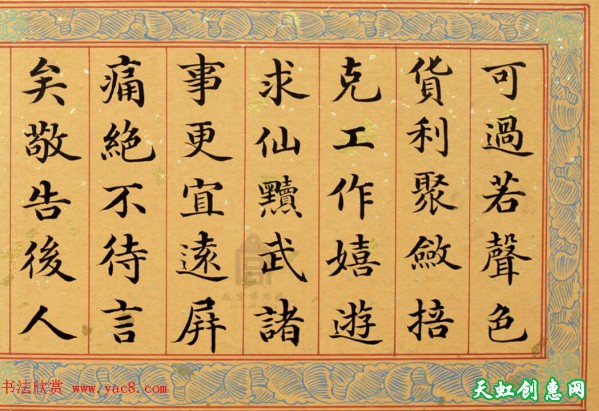 可過若聲色
貨利聚斂掊
克工作嬉遊
求仙黷武諸
事更宜遠屏
痛絕不待言
矣敬告後人
书法欣赏 www.yac8.com
天虹创惠网